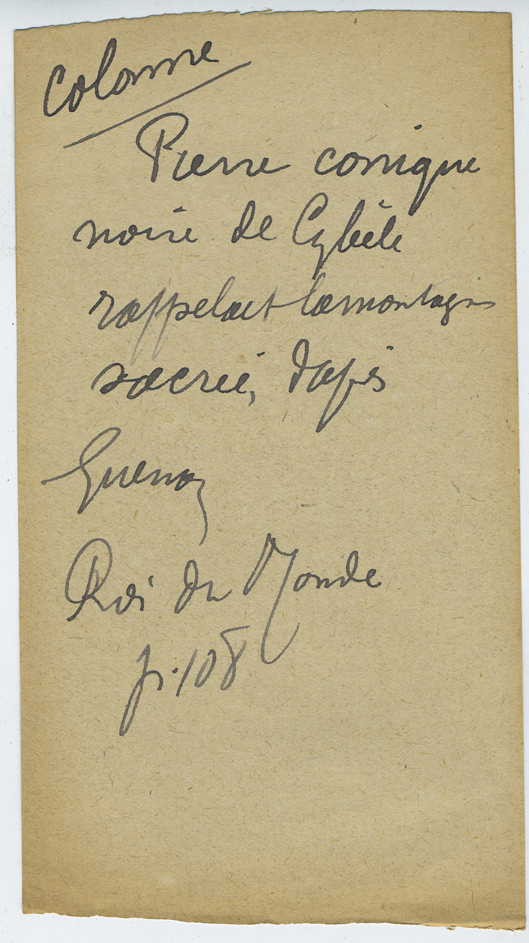 Colonne
Pierre conique
noire de Cybèle
rappelait la montagne
sacrée, d'après
Guenon
Roi du Monde
p. 108